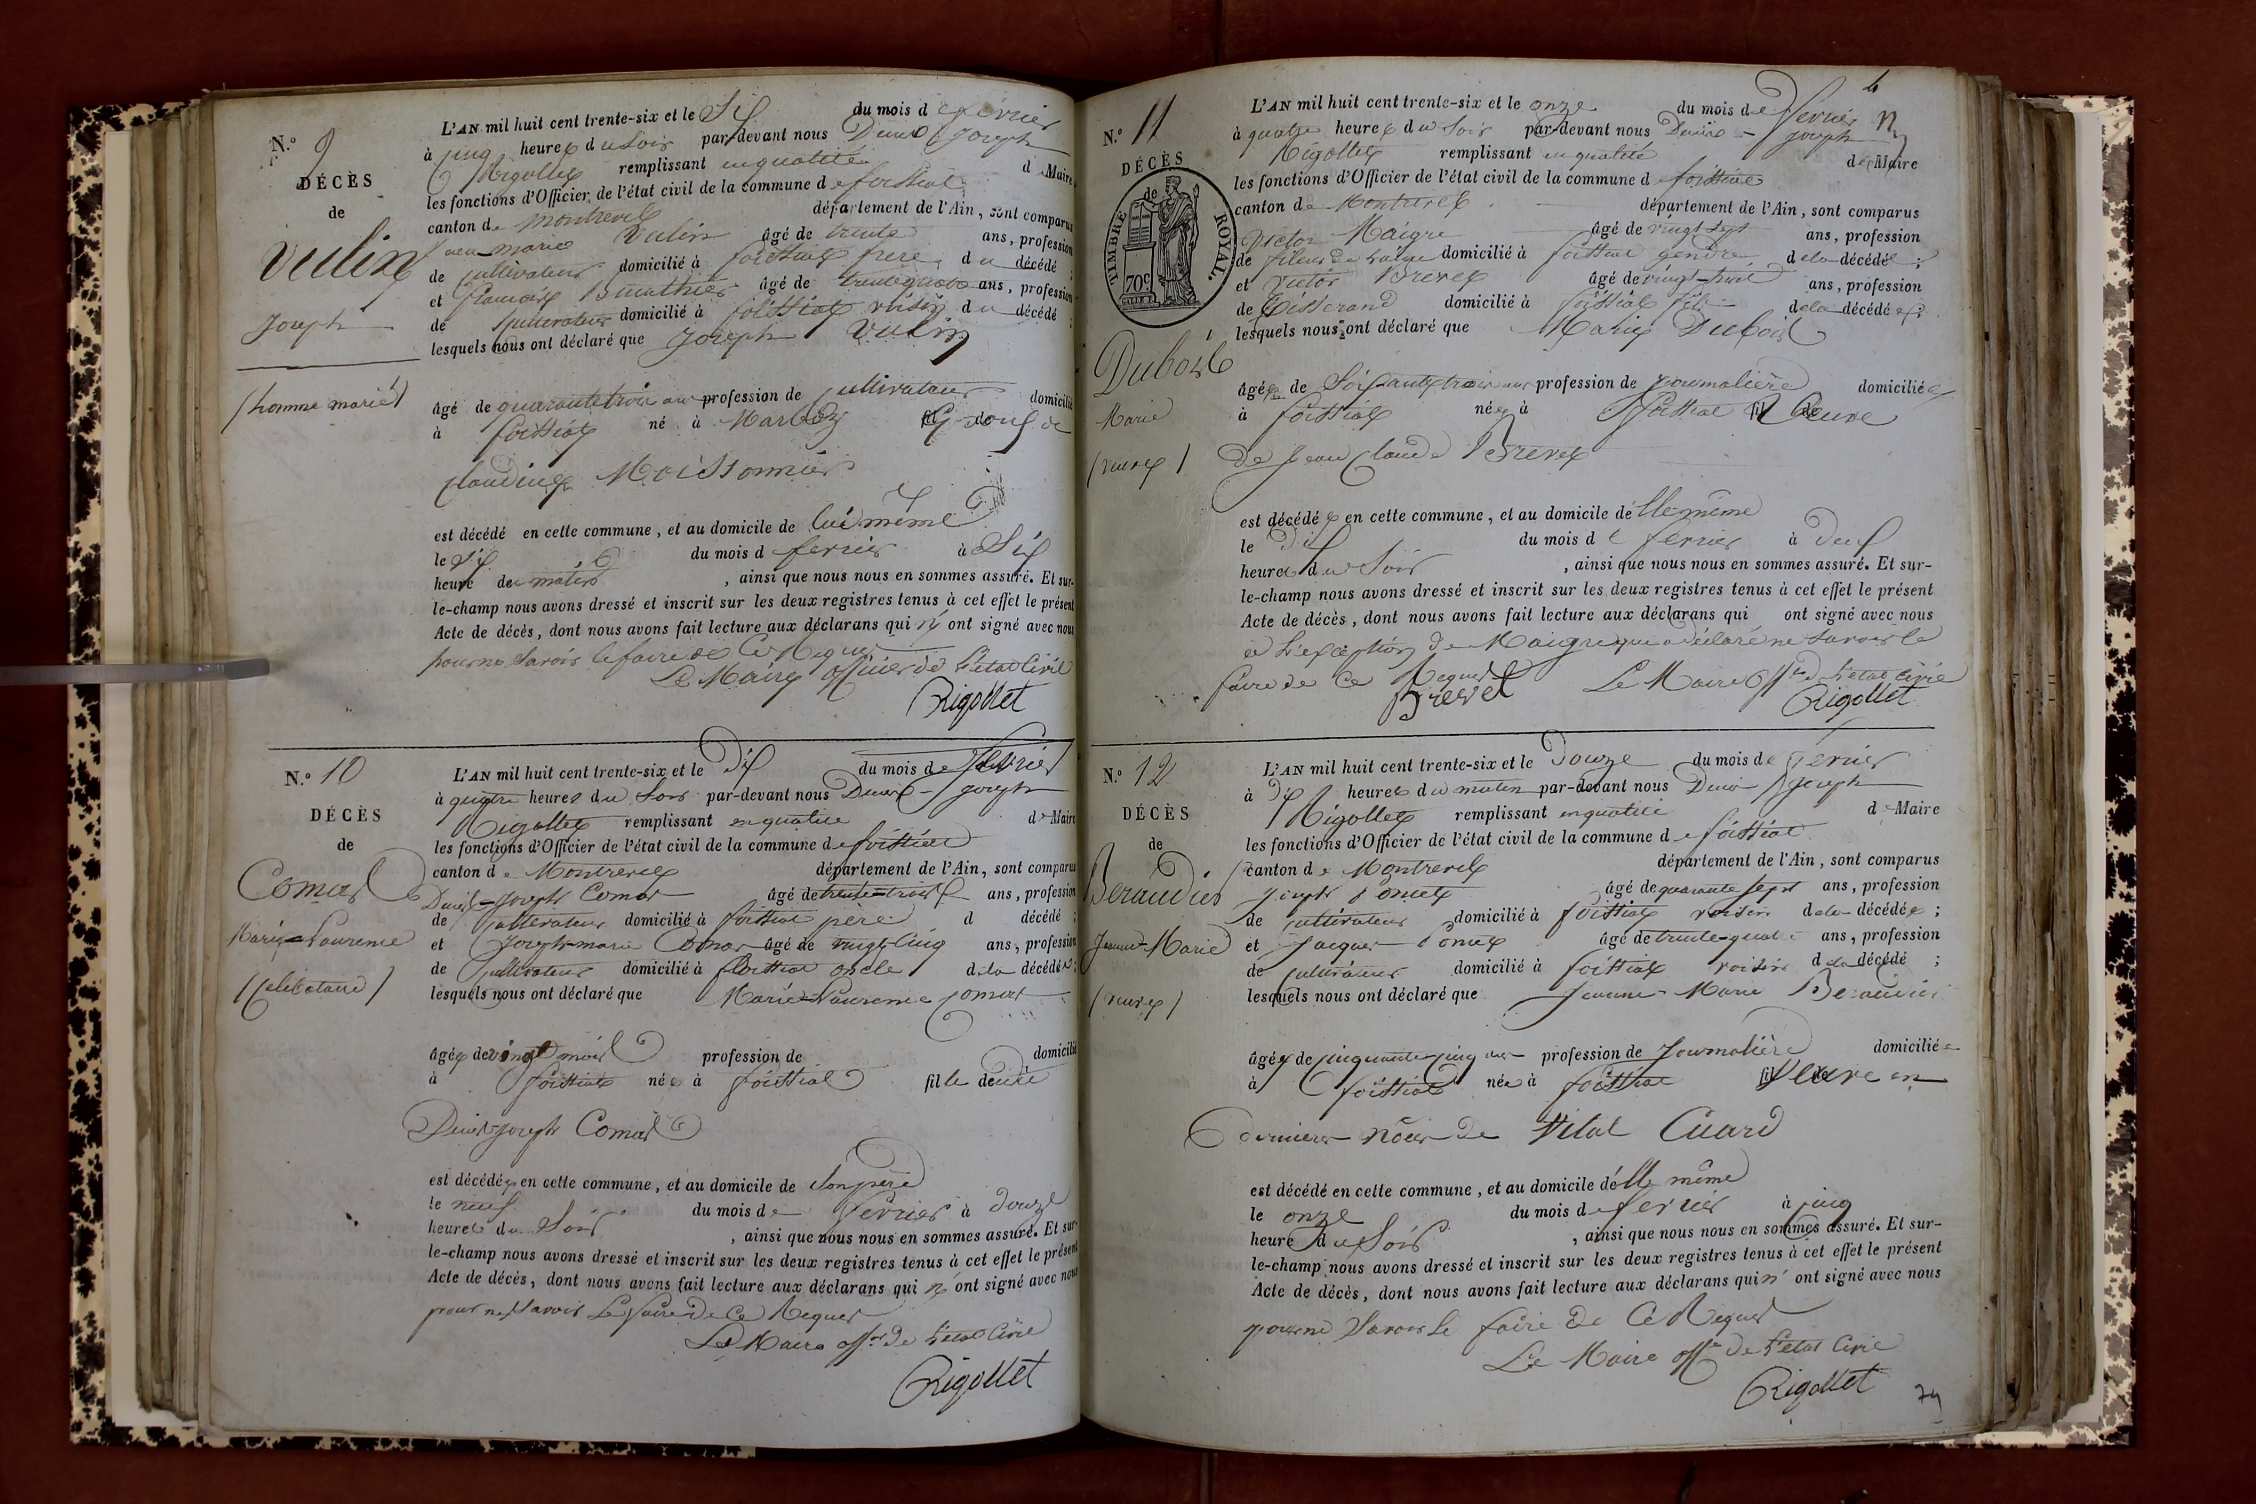 N.º 9
DÉCÈS
de
Vulin
Joseph
(homme marié)
L'AN mil huit cent trente-six et le Six du mois de février
à cinq heures du Soir par-devant nous Denis Joseph
Rigollet remplissant en qualité de Maire
les fonctions d'Officier de l'état civil de la commune de foissiat
canton de Montrevel département de l'Ain, sont comparus
marie Vulin âgé de trente ans, profession
de cultivateur domicilié à foissiat frere du décédé ;
et françois Buathier âgé de trente quatre ans, profession
de cultivateur domicilié à foissiat voisin du décédé ;
lesquels nous ont déclaré que Joseph Vulin
âgé de quarante trois ans profession de cultivateur domicilié
à foissiat né à Marboz Epoux de
Claudine Moissonnier
est décédé en cette commune, et au domicile de lui même
le Six du mois de fevrier à Six
heure du matin, ainsi que nous nous en sommes assuré. Et sur-
le-champ nous avons dressé et inscrit sur les deux registres tenus à cet effet le présent
Acte de décès, dont nous avons fait lecture aux déclarans qui n'ont signé avec nous
pour ne Savoir le faire de Ce Requis
Le Maire officier de l'état Civil
Rigollet
N.º 10
DÉCÈS
de
Comas
Marie-Laurence
(Celibataire)
L'AN mil huit cent trente-six et le Dix du mois de fevrier
à quatre heures du Soir par-devant nous Denis-Joseph
Rigollet remplissant en qualité de Maire
les fonctions d'Officier de l'état civil de la commune de foissiat
canton de Montrevel département de l'Ain, sont comparus
Denis-Joseph Comas âgé de trente-trois ans, profession
de cultivateur domicilié à foissiat père d décédé ;
et Joseph-marie Comas âgé de vingt-cinq ans, profession
de cultivateur domicilié à foissiat oncle de la décédée ;
lesquels nous ont déclaré que Marie-Laurence Comas
âgée de vingt mois profession de domicilié
à foissiat née à foissiat fille de
Denis-Joseph Comas
est décédée en cette commune, et au domicile de Son père
le neuf du mois de fevrier à Douze
heures du Soir, ainsi que nous nous en sommes assuré. Et sur-
le-champ nous avons dressé et inscrit sur les deux registres tenus à cet effet le présent
Acte de décès, dont nous avons fait lecture aux déclarans qui n'ont signé avec nous
pour ne Savoir le faire de Ce Requis
Le Maire off.er de l'etat Civil
Rigollet
N.º 11
DÉCÈS
de
TIMBRE ROYAL
70c
Dubois
Marie
(veuve)
L'AN mil huit cent trente-six et le onze du mois de fevrier
à quatre heures du Soir par-devant nous Denis-Joseph
Rigollet remplissant en qualité de Maire
les fonctions d'Officier de l'état civil de la commune de foissiat
canton de Montrevel département de l'Ain, sont comparus
Victor Maigre âgé de vingt sept ans, profession
de fileur de laine domicilié à foissiat gendre de la décédée ;
et Victor Brevet âgé de vingt-huit ans, profession
de Tisserand domicilié à foissiat fils de la décédée ;
lesquels nous ont déclaré que Marie Dubois
âgée de Soixante trois ans profession de journalière domiciliée
à foissiat née à foissiat Veuve
de Jean Claude Brevet
est décédée en cette commune, et au domicile d'elle même
le Dix du mois de fevrier à Deux
heures du Soir, ainsi que nous nous en sommes assuré. Et sur-
le-champ nous avons dressé et inscrit sur les deux registres tenus à cet effet le présent
Acte de décès, dont nous avons fait lecture aux déclarans qui ont signé avec nous
à l'exception de Maigre qui a déclaré ne Savoir le
faire de Ce Requis Le Maire off.er de l'etat Civil
Brevet Rigollet
N.º 12
DÉCÈS
de
Beraudier
Jeanne-Marie
(veuve)
L'AN mil huit cent trente-six et le Douze du mois de fevrier
à Dix heures du matin par-devant nous Denis Joseph
Rigollet remplissant en qualité de Maire
les fonctions d'Officier de l'état civil de la commune de foissiat
canton de Montrevel département de l'Ain, sont comparus
Joseph Poncet âgé de quarante sept ans, profession
de cultivateur domicilié à foissiat voisin de la décédée ;
et Jacques Poncet âgé de trente-quatre ans, profession
de cultivateur domicilié à foissiat voisin de la décédé ;
lesquels nous ont déclaré que Jeanne-Marie Beraudier
âgée de cinquante-cinq ans profession de Journalière domiciliée
à foissiat née à foissiat Veuve en
dernieres nôces de Vital Cuard
est décédé en cette commune, et au domicile d'elle même
le onze du mois de fevrier à cinq
heure du Soir, ainsi que nous nous en sommes assuré. Et sur-
le-champ nous avons dressé et inscrit sur les deux registres tenus à cet effet le présent
Acte de décès, dont nous avons fait lecture aux déclarans qui n'ont signé avec nous
pour ne Savoir le faire de Ce Requis
Le Maire off.er de l'etat Civil
Rigollet